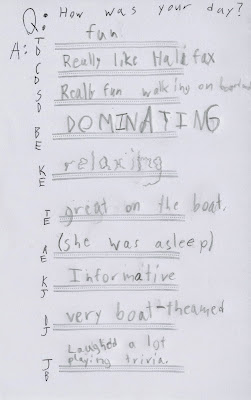 Q: How was your day?
A:
TD fun
CD Really like Halifax
SD Really fun walking on boardwalk
BE DOMINATING
KE relaxing
TE great on the boat.
AE (she was asleep)
KJ Informative
DJ very boat-themed
JB Laughed a lot
playing trivia.